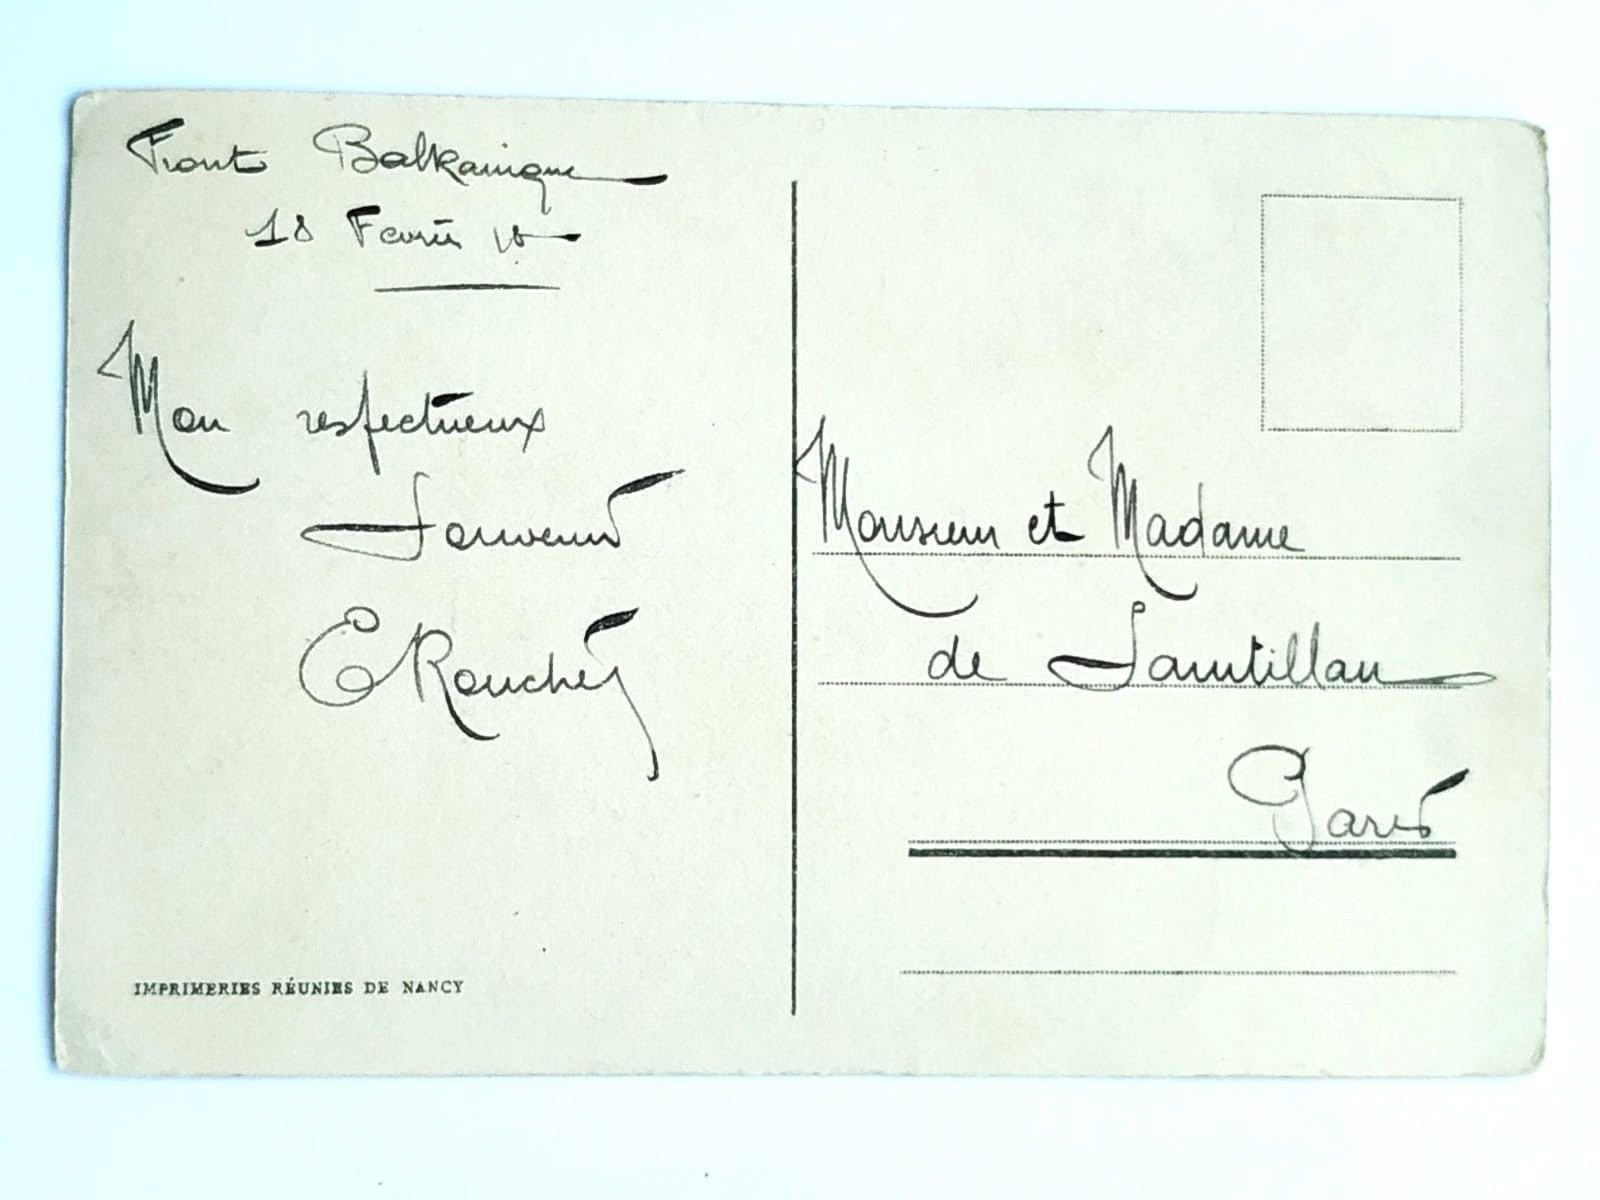 Front Balkanique
18 Février 18
Mon respectueux
Souvenir
E Rouche
Monsieur et Madame
de Saintillan
Paris
IMPRIMERIES RÉUNIES DE NANCY